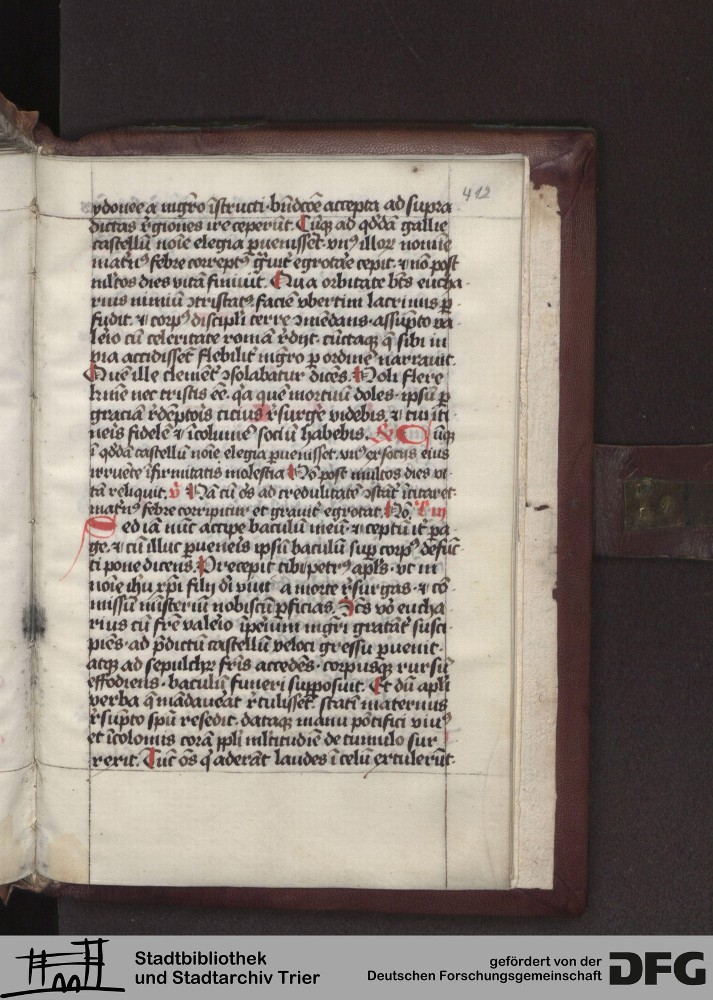 412
ydonee a mgr̄o īstructi. bn̄dcōe accepta ad supra
dictas r̄giones ire ceperūt. Cūq; ad qd̄dā gallie
castellū noīe elegia ꝑuenisset. vnꝰ illoꝝ nomīe
matn̄ꝰ febre correptꝰ gͣuit̄ egrotāe cepit. ⁊ nō post
ml̄tos dies vitā finiuit. Qua orbitate bt̄s eucha
rius nimiū ꝯtristatꝰ faciē vbertim lacrimis ꝑ
fudit. ⁊ corpꝰ discipli terre ꝯmēdans. assūpto va
leio cū celeritate romā r̄dijt. cūctaqꝫ q̄ sibi in
via accidisset flebilit̄ mgr̄o ꝑ ordinē narrauit.
Quē ille clement̄ ꝯsolabatur dicēs. Noli flere
hui nec tristis eē. qͥa quē mortuū doles. ipsū ꝑ
graciā r̄dēptoīs citius r̄surgē videbis. ⁊ tui iti
neis fidelē ⁊ īcolumē sociū habebis. Cūq;
ī qd̄dā castellū noīe elegia ꝑuenisset. vnꝰ ex socijs eius
irruēte īfirmitatis molestia Nō post multos dies vi
tā reliquit. v̄ Nā cū oēs ad credulitatē ꝯstāt̄ īcitaret
matn̄ꝰ febre corripitur et grauit̄ egrotat. Nō. lc̄ iij
Sed iā nūc accipe baculū meū ⁊ ceptū it̄ ꝑa
ge. ⁊ cū illuc ꝑueneis ipsū baculū suꝑ corpꝰ defūc
ti pone dicens. Precepit tibi petrꝰ apl̄s. vt in
noīe ih̄u xp̄i filij dī viui a morte r̄surgas. ⁊ cō
missū mīsteriū nobiscū ꝑficias. Sc̄s vō eucha
rius cū fr̄e valeio īpeium mgr̄i gratāt̄ susci
piēs. ad p̄dictū castellū veloci gressu ꝑuenit.
atqꝫ ad sepulchꝝ fr̄is accedēs. corpusqꝫ rursū
effodiens. baculū funeri supposuit. Et dū apl̄i
verba q̄ mādaueāt r̄tulisset. statī maternus
r̄sūpto sp̄u resedit. dataqꝫ manu pōtifici viuꝰ
et īcolomis corā pp̄li ml̄titudiē de tumulo sur
rexit. Tūc oēs q̄ aderāt laudes ī celū extulerūt.
Stadtbibliothek
und Stadtarchiv Trier
gefördert von der
Deutschen Forschungsgemeinschaft
DFG